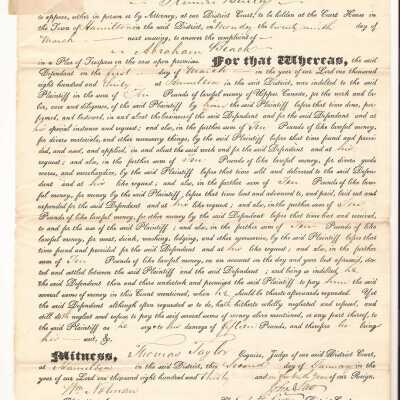 to appear, either in person or by Attorney, at our District Court, to be holden at the Court House in
the Town of Hamilton in the said District, on Monday the twenty ninth day of
March next ensuing, to answer the complaint of
Abraham Beach
in a Plea of Trespass on the case upon promises For that Whereas, the said
Defendant on the first day of March in the year of our Lord one thousand
eight hundred and thirty at Hamilton in the said District, was indebted to the
Plaintiff in the sum of Ten Pounds of lawful money of Upper Canada, for the work and la-
bor, care and diligence, of the said Plaintiff by him the said Plaintiff, before that time done, per-
formed, and bestowed, in and about the business of the said Defendant and for the said Defendant and at
his special instance and request; and also, in the further sum of Ten Pounds of like lawful money,
for divers materials, and other necessary things, by the said Plaintiff before that time found and provi-
ded, and used, and applied, in and about the said work and for the said Defendant and at his
request; and also, in the further sum of Ten Pounds of like lawful money, for divers goods
wares, and merchandize, by the said Plaintiff before that time sold and delivered to the said Defendant
and at his like request; and also, in the further sum of Ten Pounds of like law-
ful money, for money by the said Plaintiff, before that time lent and advanced to, and paid, laid out and
expended for the said Defendant and at his like request; and also, in the further sum of Ten
Pounds of like lawful money, for other money by the said Defendant before that time had and received,
to and for the use of the said Plaintiff; and also, in the further sum of Ten Pounds of like
lawful money, for meat, drink, washing, lodging, and other necessaries, by the said Plaintiff, before that
time found and provided for the said Defendant and at his like request; and also, in the further
sum of Ten Pounds of like lawful money, on an account on the day and year last aforesaid, sta-
ted and settled between the said Plaintiff and the said Defendant; and being so indebted, he
the said Defendant then and there undertook and promised the said Plaintiff to pay him the said
several sums of money in this Count mentioned, when he should be thereto afterwards requested. Yet the
said Defendant although often requested so to do, hath hitherto wholly neglected and refused, and
still doth neglect and refuse to pay the said several sums of money above mentioned, or any part thereof, to
the said Plaintiff as he says to his damage of fifteen Pounds, and therefore he brings
his suit, &c.
Witness, Thomas Taylor Esquire, Judge of our said District Court,
at Hamilton in the said District, this Second day of January in the
year of our Lord one thousand eight hundred and thirty and in the tenth year of our Reign.